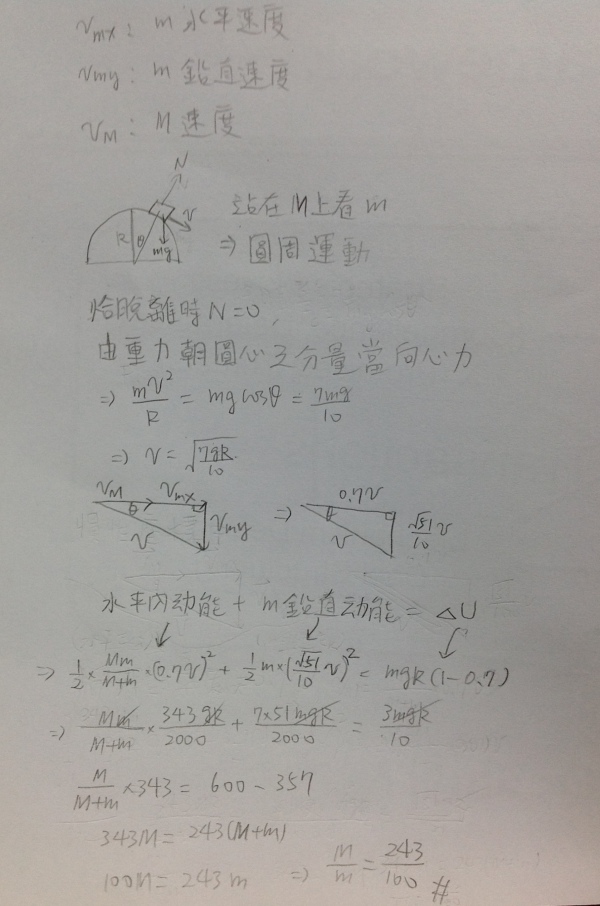 v_mx: m 水平速度
v_my: m 鉛直速度
v_M: M 速度
N
R θ v mg
站在M上看m
⇒ 圓周運動
恰脫離時N=0,
由重力朝圓心之分量當向心力
⇒ mv²/R = mg cosθ = 7mg/10
⇒ v = √(7gR/10)
v_M v_mx θ v v_my ⇒ 0.7v θ v √51/10 v
水平內动能 + m鉛直动能 = △U
⇒ 1/2 × Mm/(M+m) × (0.7v)² + 1/2 m × (√51/10 v)² = mgR(1-0.7)
⇒ Mm/(M+m) × 343gR/2000 + 7×51mgR/2000 = 3mgR/10
M/(M+m) × 343 = 600 - 357
343M = 243(M+m)
100M = 243m ⇒ M/m = 243/100 #